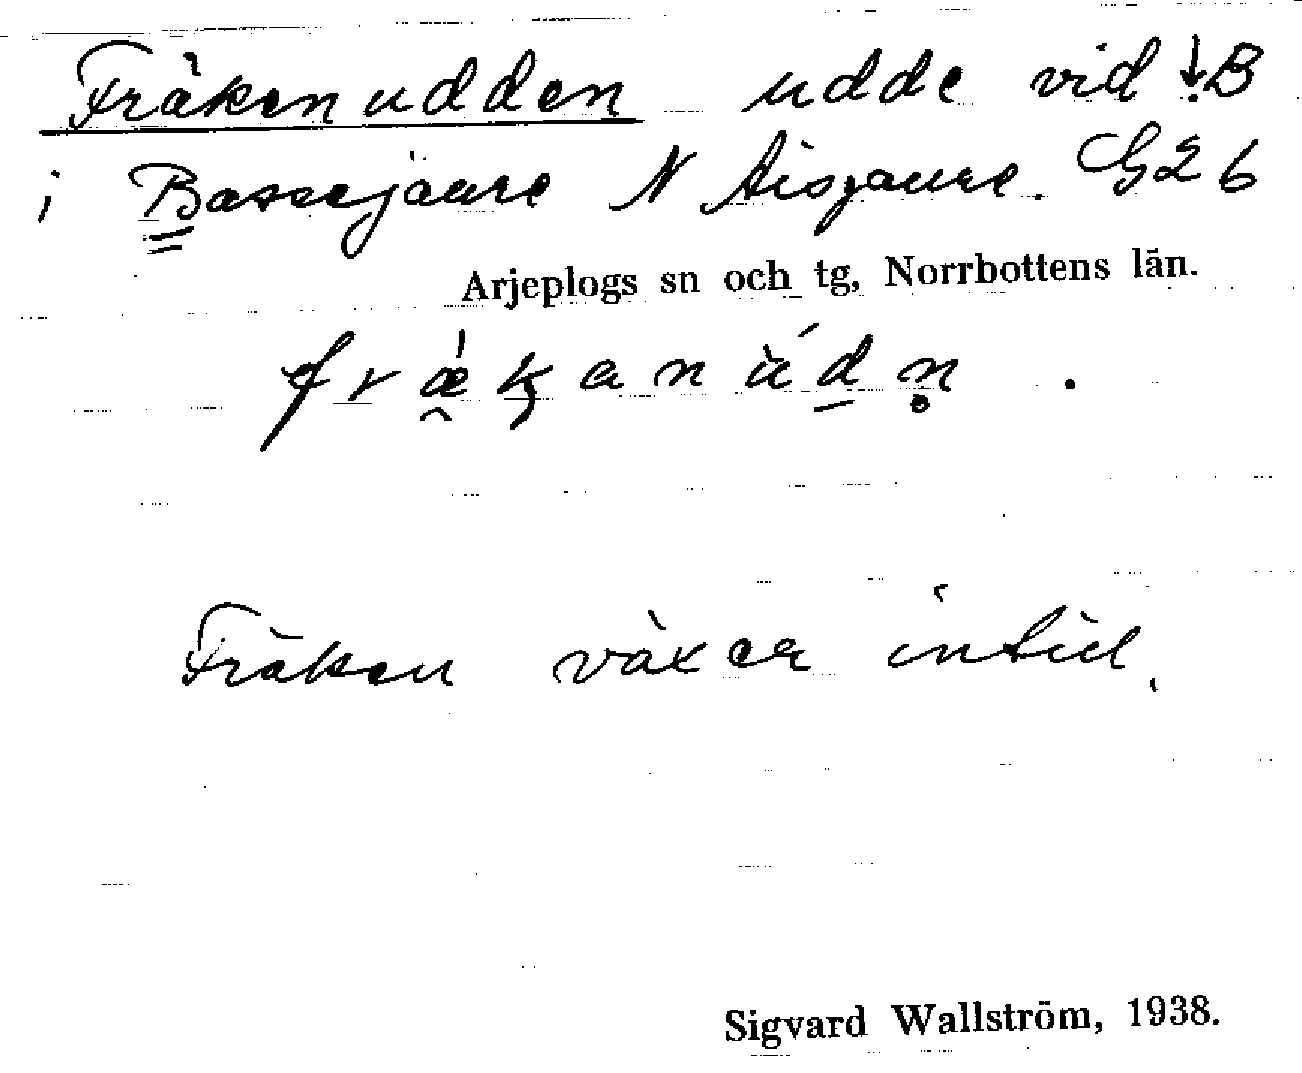 Fräkenudden udde vid ↓B
i Bassejaure N Aisjaure. G2 b
Arjeplogs sn och tg, Norrbottens län.
frækanùdn.
Fräken växer intill.
Sigvard Wallström, 1938.